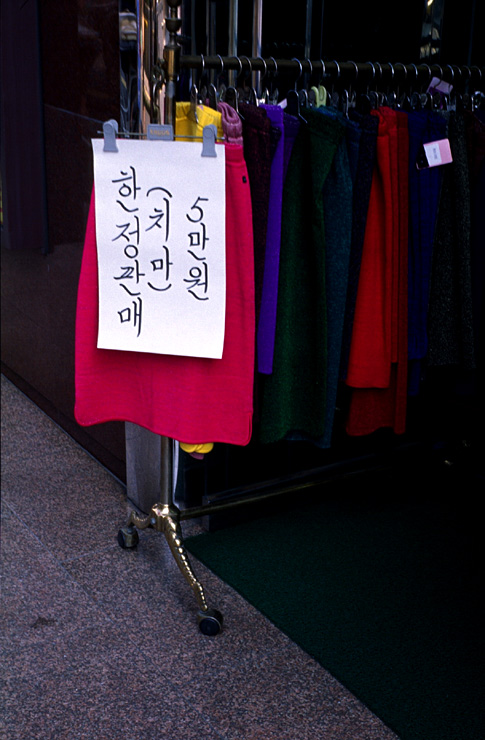 한정판매
(치마)
5만원